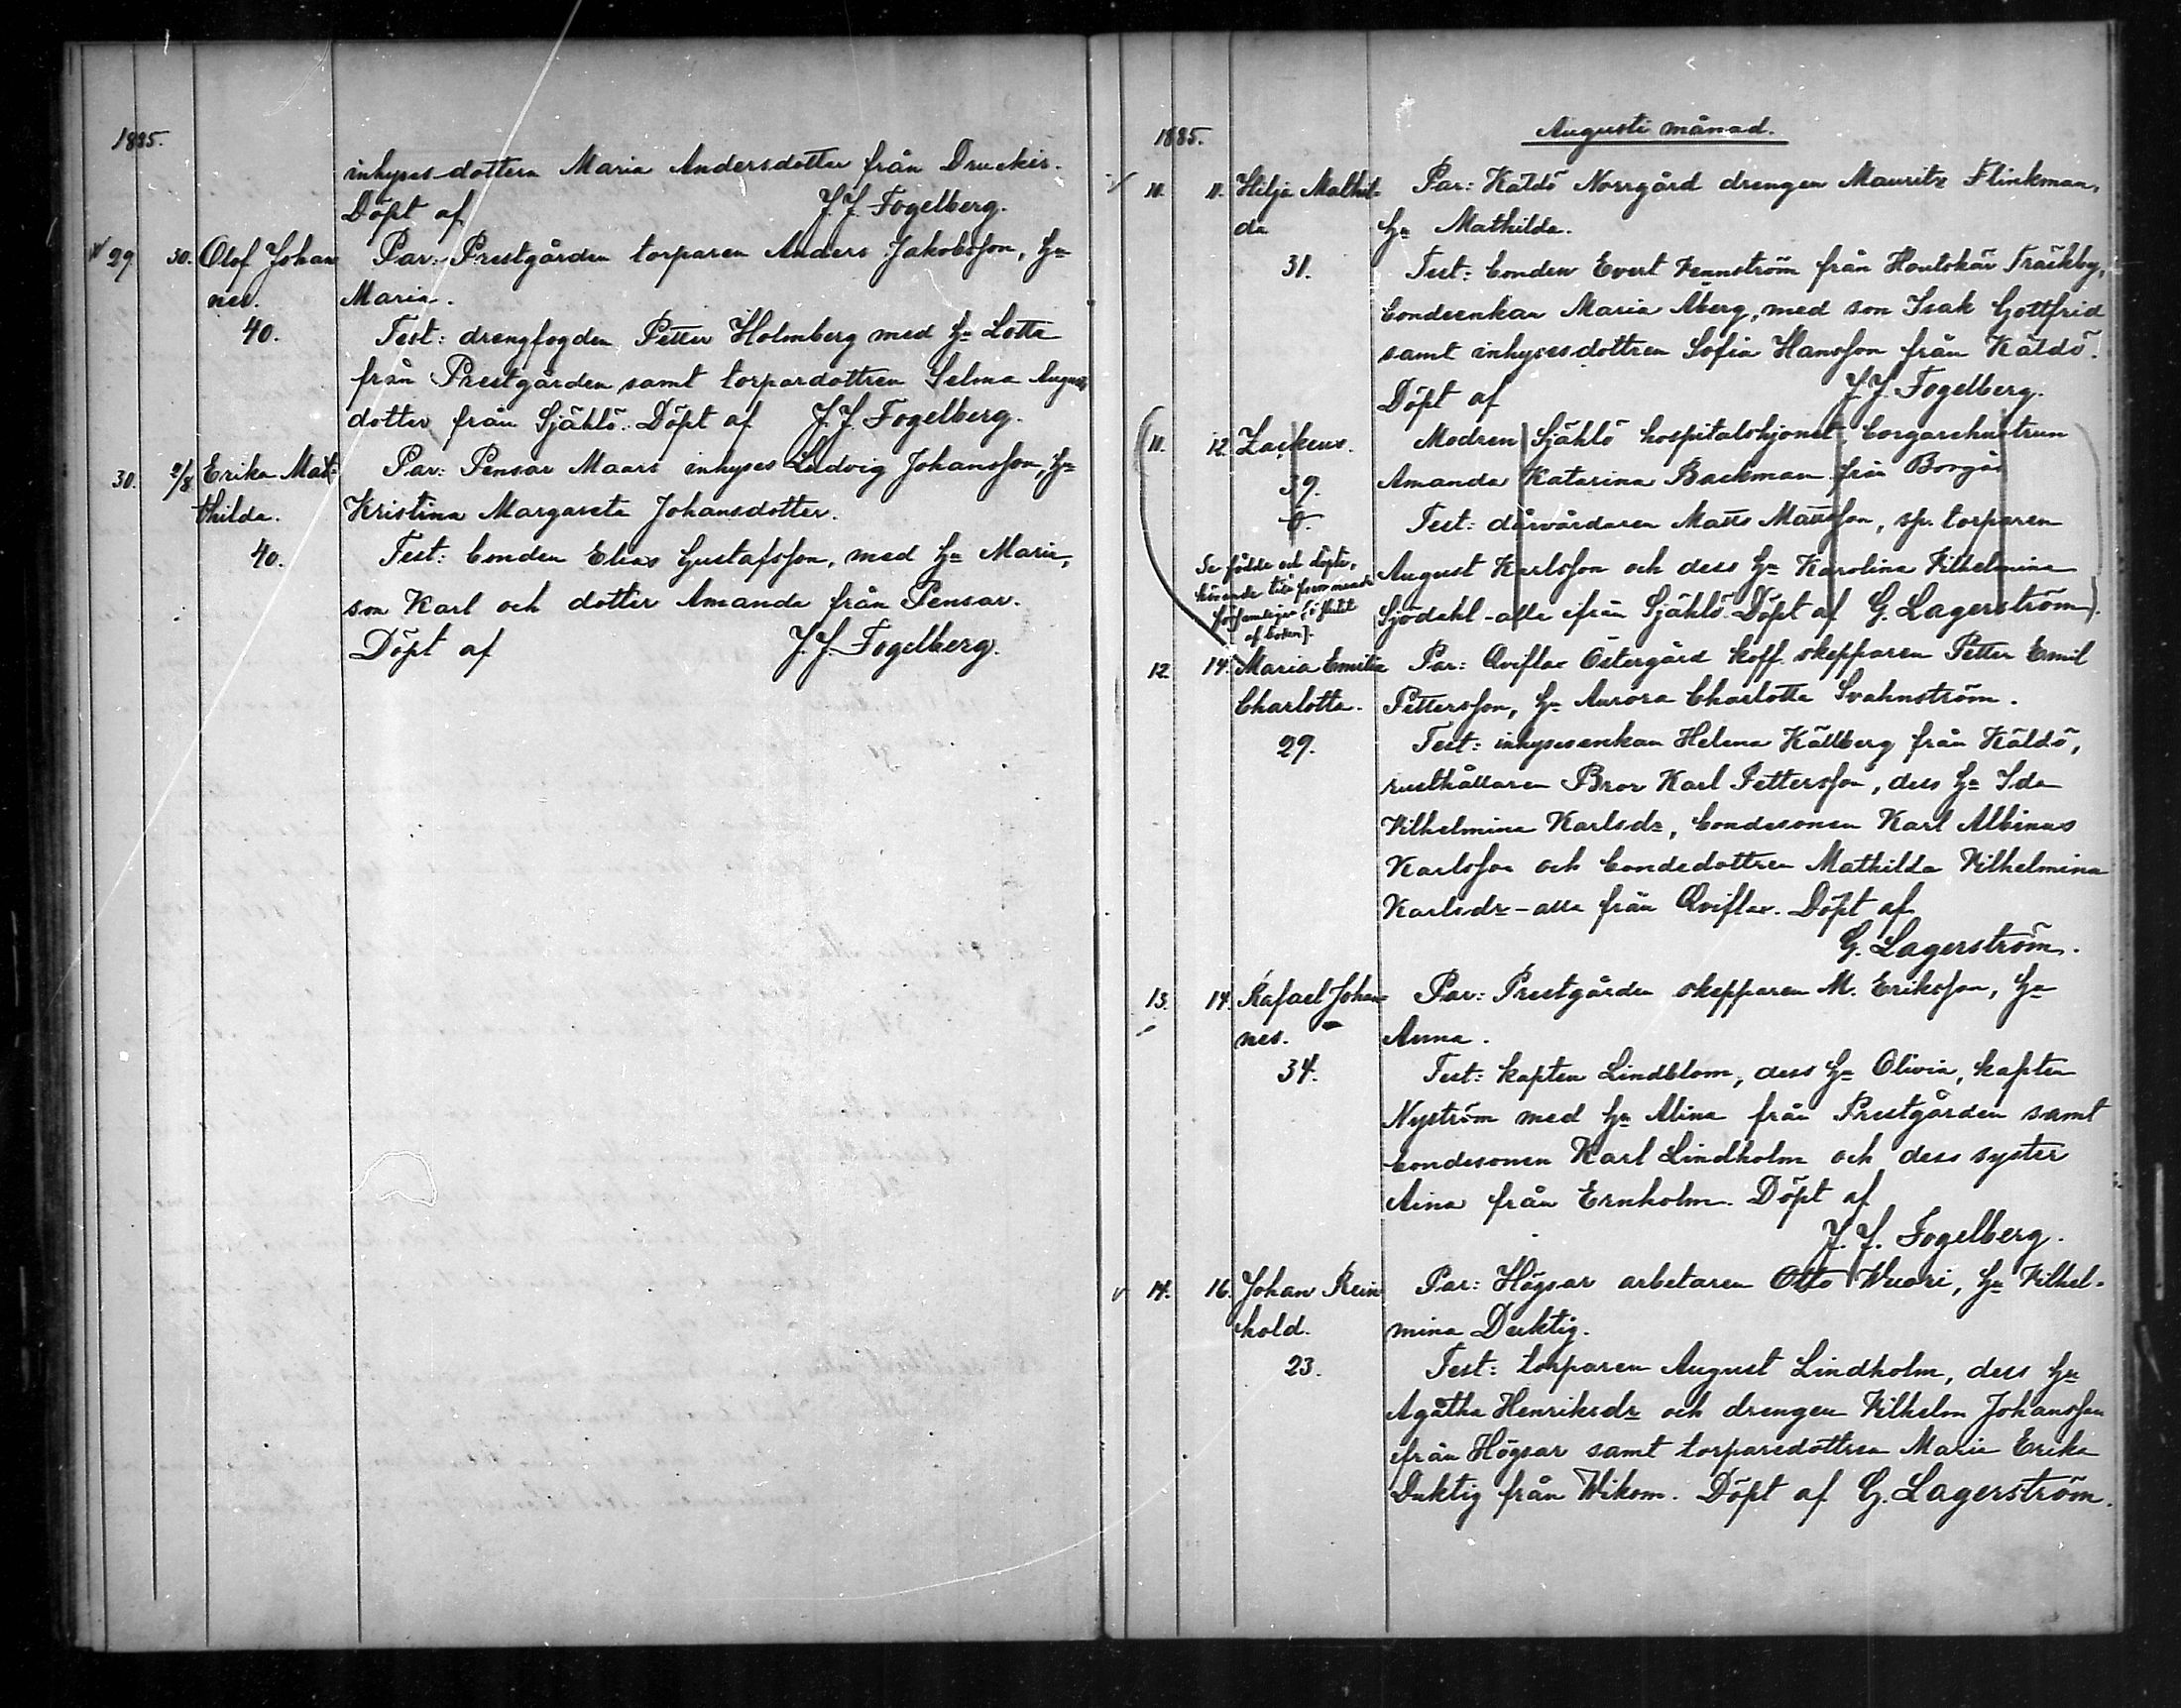 1885.
inhyses dottern Maria Andersdotter från Druckis.
Döpt af J. J. Fogelberg.
29 30. Olof Johan Par: Prestgården torparen Anders Jakobsson, Hu
nes. Maria.
40. Test: drengfogden Petter Holmberg med Hu Lotta
från Prestgården samt torpardottren Selma Augusts
dotter från Själlö. Döpt af J. J. Fogelberg.
30. 2/8 Erika Mat- Par: Pensar Maars inhyses Ludvig Johansson, Hu
thilda. Kristina Margareta Johansdotter.
40. Test: bonden Elias Gustafsson, med Hu Maria,
son Karl och dotter Amanda från Pensar.
Döpt af J. J. Fogelberg.
1885. Augusti månad.
11. Hilja Mathil- Par: Käldö Norrgård drengen Mauritz Flinkman,
da Hu Mathilda.
31. Test: bonden Evert Vennström från Houtskär Träskby,
bondeenkan Maria Åberg, med son Isak Gottfrid
samt inhysesdottren Sofia Hansson från Käldö.
Döpt af J. J. Fogelberg.
11. 12 Zackeus. Modren Själlö hospitalshjonet, borgarehustrun
39. Amanda Katarina Backman från Borgå
Test: dårvårdaren Matts Mattsson, sp. torparen
Se födde och döpte,
August Karlsson och dess Hu Karolina Vilhelmina
af boken).
Sjödahl - alla från Själlö. Döpt af G. Lagerström).
12 14. Maria Emilia Par: Qviflax Östergård koff. skepparen Petter Emil
Charlotta. Pettersson, Hu Aurora Charlotta Svahnström.
29. Test: inhysesenkan Helena Källberg från Käldö,
rusthållaren Bror Karl Pettersson, dess Hu Ida
Vilhelmina Karlsdr, bondesonen Karl Albinus
Karlsson och bondedottren Mathilda Vilhelmina
Karlsdr - alla från Qviflax. Döpt af
G. Lagerström.
13. 14. Rafael Johan- Par: Prestgården skepparen M. Eriksson, Hu
nes. Anna.
34. Test: kapten Lindblom, dess Hu Olivia, kapten
Nyström med Hu Alina från Prestgården samt
bondesonen Karl Lindholm och dess syster
Aina från Ernholm. Döpt af
J. J. Fogelberg.
14. 16. Johan Rein Par: Högsar arbetaren Otto Wuori, Hu Vilhel-
hold. mina Duktig.
23. Test: torparen August Lindholm, dess Hu
Agatha Henriksdr och drengen Vilhelm Johansson
från Högsar samt torparedottren Maria Erika
Duktig från Wikom. Döpt af G. Lagerström.